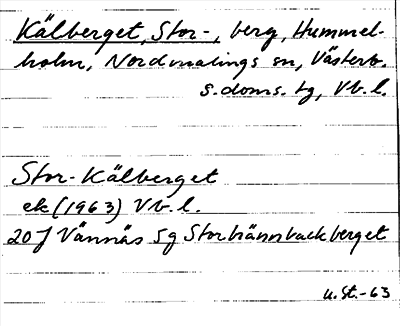 Kälberget, Stor-, berg, Hummel-
holm, Nordmalings sn, Västerb.
s. doms. tg, Vb. l.
Stor-Kälberget
ek (1963) Vb. l.
20 J Vännäs 5 g Storhännbackberget
u. St. -63